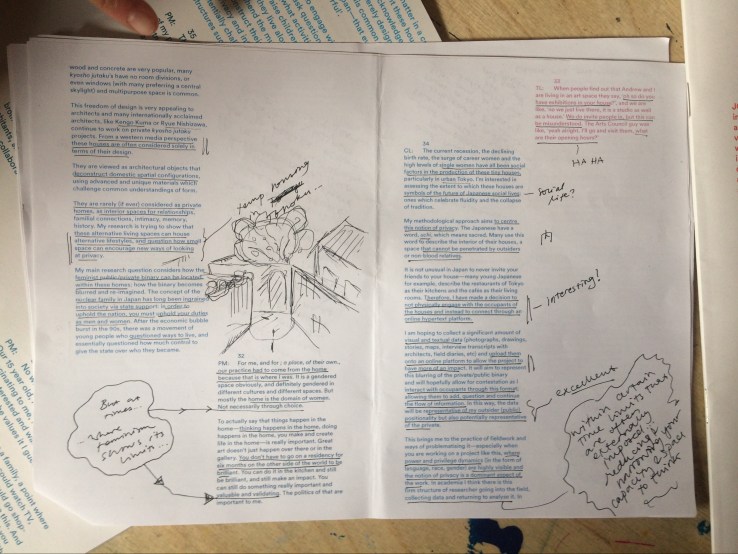 wood and concrete are very popular, many
kyosho jutaku's have no room divisions, or
even windows (with many preferring a central
skylight) and multipurpose space is common.
This freedom of design is very appealing to
architects and many internationally acclaimed
architects, like Kengo Kuma or Ryue Nishizawa,
continue to work on private kyosho jutaku
projects. From a western media perspective
these houses are often considered solely in
terms of their design.
They are viewed as architectural objects that
deconstruct domestic spatial configurations,
using advanced and unique materials which
challenge common understandings of form.
They are rarely (if ever) considered as private
homes, as interior spaces for relationships,
familial connections, intimacy, memory,
history. My research is trying to show that
these alternative living spaces can house
alternative lifestyles, and question how small
space can encourage new ways of looking
at privacy.
My main research question considers how the
feminist public/private binary can be located
within these homes; how the binary becomes
blurred and re-imagined. The concept of the
nuclear family in Japan has long been ingrained
into society via state support: in order to
uphold the nation, you must uphold your duties
as men and women. After the economic bubble
burst in the 90s, there was a movement of
young people who questioned ways to live, and
essentially questioned how much control to
give the state over who they became.
But at
times...
where
feminism
shows its
limits...
temp housing
32
PM: For me, and for ; a place, of their own.,
our practice had to come from the home
because that is where I was. It is a gendered
space obviously, and definitely gendered in
different cultures and different spaces. But
mostly the home is the domain of women.
Not necessarily through choice.
To actually say that things happen in the
home—thinking happens in the home, doing
happens in the home, you make and create
life in the home—is really important. Great
art doesn't just happen over there or in the
gallery. You don't have to go on a residency for
six months on the other side of the world to be
brilliant. You can do it in the kitchen and still
be brilliant, and still make an impact. You
can still do something really important and
valuable and validating. The politics of that are
important to me.
33
TL: When people find out that Andrew and I
are living in an art space they say, 'oh so do you
have exhibitions in your house?', and we are
like, 'no we just live there, it is a studio as well
as a house'. We do invite people in, but this can
be misunderstood. The Arts Council guy was
like, 'yeah alright, I'll go and visit them, what
are their opening hours?'
HA HA
34
CL: The current recession, the declining
birth rate, the surge of career women and the
high levels of single women have all been social
factors in the production of these tiny houses,
particularly in urban Tokyo. I'm interested in
assessing the extent to which these houses are
symbols of the future of Japanese social lives,
ones which celebrate fluidity and the collapse
of tradition.
social
life?
My methodological approach aims to centre
the notion of privacy. The Japanese have a
word, uchi, which means sacred. Many use this
word to describe the interior of their houses, a
space that cannot be penetrated by outsiders
or non-blood relatives.
内
It is not unusual in Japan to never invite your
friends to your house—many young Japanese
for example, describe the restaurants of Tokyo
as their kitchens and the cafés as their living
rooms. Therefore, I have made a decision to
not physically engage with the occupants of
the houses and instead to connect through an
online hypertext platform.
Interesting!
I am hoping to collect a significant amount of
visual and textual data (photographs, drawings,
stories, maps, interview transcripts with
architects, field diaries, etc) and upload them
onto an online platform to allow the project to
have more of an impact. It will aim to represent
this blurring of the private/public binary
and will hopefully allow for contestation as I
interact with occupants through this format,
allowing them to add, question and continue
the flow of information. In this way, the data
will be representative of my outsider (public)
positionality but also potentially representative
of the private.
excellent
This brings me to the practice of fieldwork and
ways of problematising it—especially when
you are working on a project like this, where
power and privilege dynamics (in the form of
language, race, gender) are highly visible and
the notion of privacy is a dominant aspect of
the work. In academia I think there is this
firm structure of researcher going into the field,
collecting data and returning to analyse it. In
within certain
time limits that
are often
externally
imposed,
reducing
your
capacity
to think